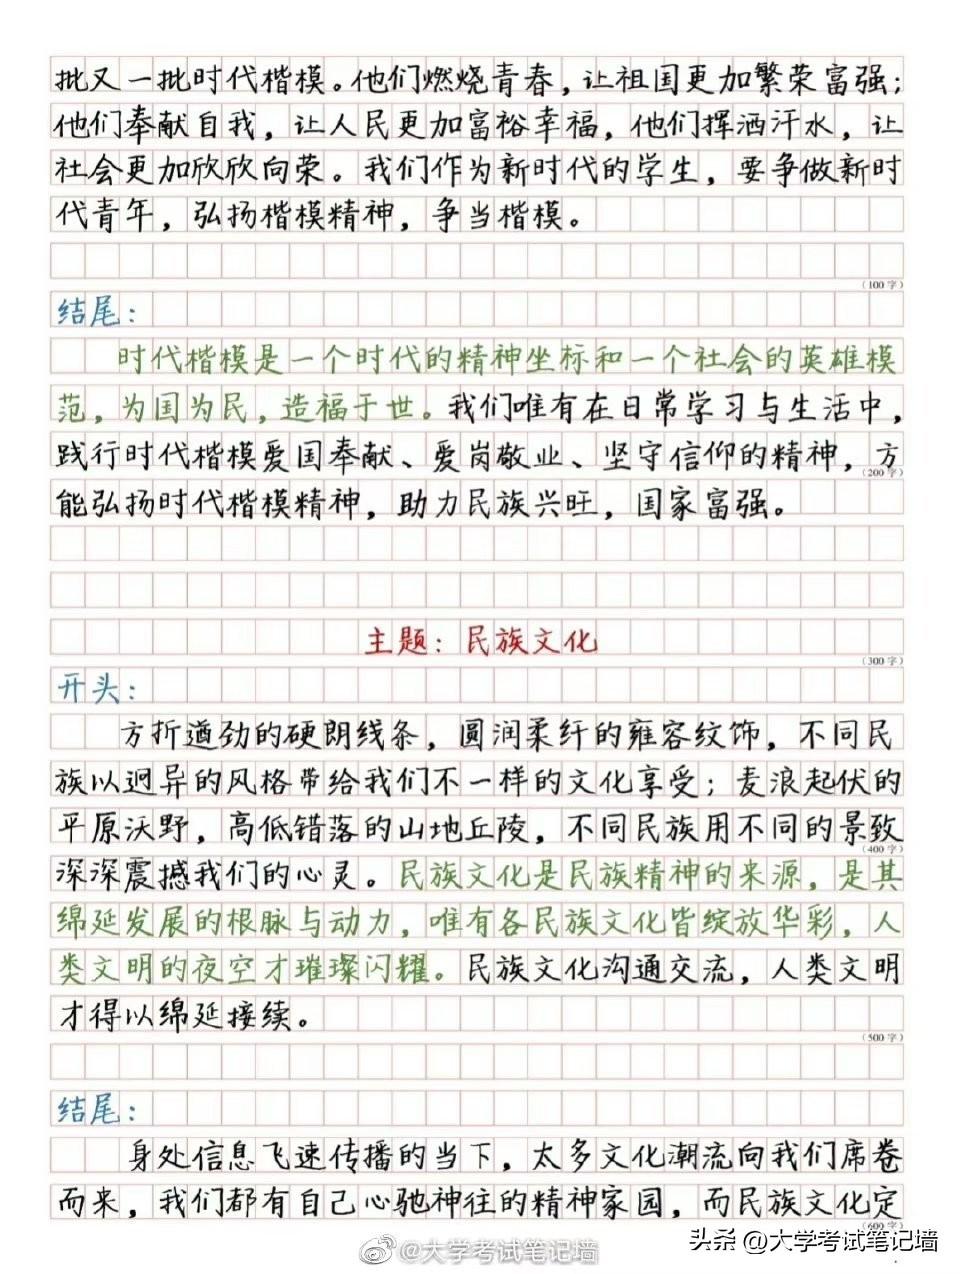 批又一批时代楷模。他们燃烧青春，让祖国更加繁荣富强；
他们奉献自我，让人民更加富裕幸福，他们挥洒汗水，让
社会更加欣欣向荣。我们作为新时代的学生，要争做新时
代青年，弘扬楷模精神，争当楷模。
（100字）
结尾：
时代楷模是一个时代的精神坐标和一个社会的英雄模
范，为国为民，造福于世。我们唯有在日常学习与生活中，
践行时代楷模爱国奉献、爱岗敬业、坚守信仰的精神，方
（200字）
能弘扬时代楷模精神，助力民族兴旺，国家富强。
主题：民族文化
（300字）
开头：
方折遒劲的硬朗线条，圆润柔纤的雍容纹饰，不同民
族以迥异的风格带给我们不一样的文化享受；麦浪起伏的
平原沃野，高低错落的山地丘陵，不同民族用不同的景致
（400字）
深深震撼我们的心灵。民族文化是民族精神的来源，是其
绵延发展的根脉与动力，唯有各民族文化皆绽放华彩，人
类文明的夜空才璀璨闪耀。民族文化沟通交流，人类文明
才得以绵延接续。
（500字）
结尾：
身处信息飞速传播的当下，太多文化潮流向我们席卷
而来，我们都有自己心驰神往的精神家园，而民族文化定
（600字）
@大学考试笔记墙
头条 @大学考试笔记墙